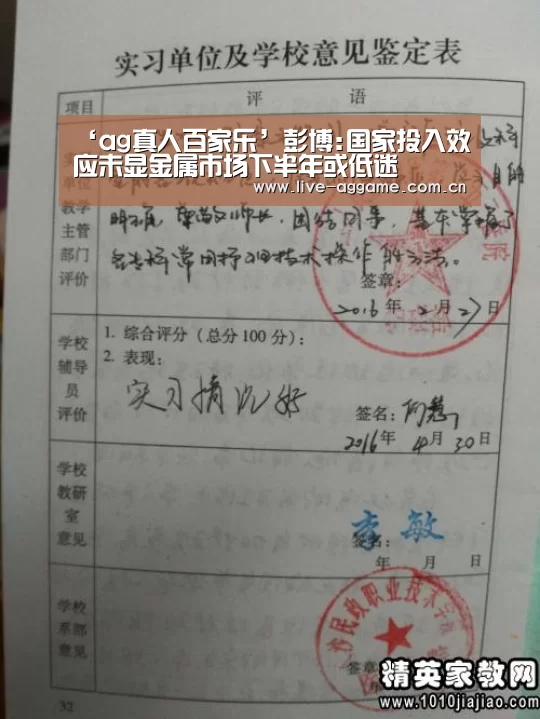 实习单位及学校意见鉴定表
项目
评 语
‘ag真人百家乐’彭博:国家投入效
应未显金属市场下半年或低迷
www.live-aggame.com.cn
教学
主管
部门
评价
明确，尊敬师长，团结同事，基本掌握了
各专科常用护理技术操作的方法。
签章：
2016年2月27日
学校
辅导
员
评价
1. 综合评分（总分100分）：
2. 表现：
实习情况好
签名：
2016年4月30日
学校
教研
室
意见
李敏
签名：
年 月 日
学校
系部
意见
沙民政职业技术学
签章
精英家教网
www.1010jiajiao.com
32